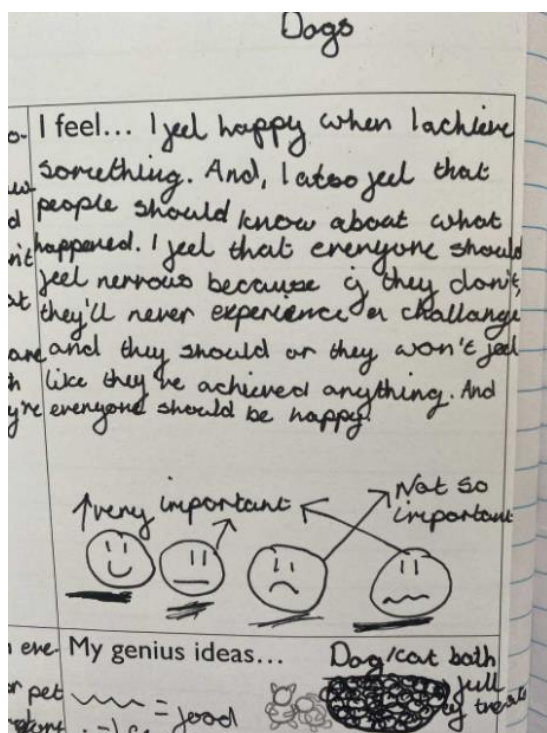 Dogs
I feel... I feel happy when I achieve
something. And, I also feel that
people should know about what
happened. I feel that everyone should
feel nervous because if they don't,
they'll never experience a challange
and they should or they won't feel
like they've achieved anything. And
everyone should be happy.
very important
Not so
important
My genius ideas...
Dog/cat both
full
of treats
= food